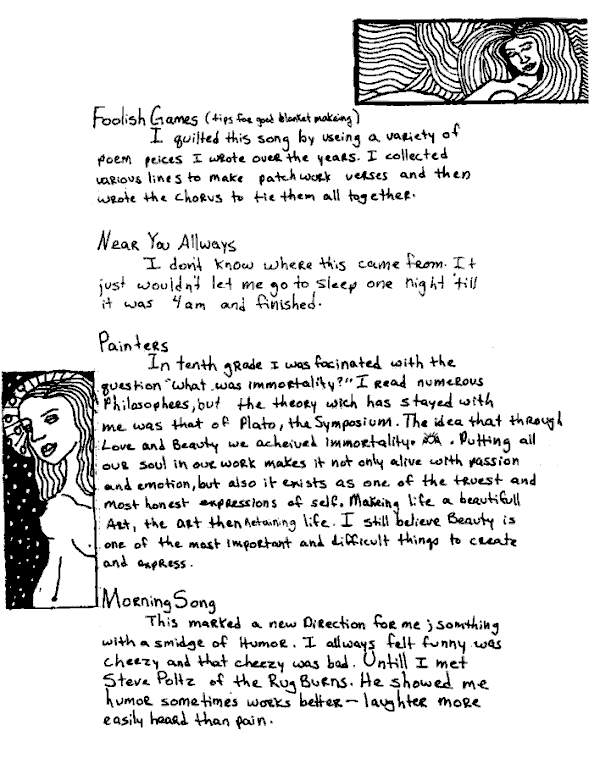 Foolish Games (tips for good blanket makeing)
I quilted this song by useing a variety of
poem peices I wrote over the years. I collected
various lines to make patchwork verses and then
wrote the chorus to tie them all together.
Near You Allways
I don't know where this came from. It
just wouldn't let me go to sleep one night 'till
it was 4am and finished.
Painters
In tenth grade I was facinated with the
question "what was immortality?" I read numerous
Philosophers, but the theory wich has stayed with
me was that of Plato, the Symposium. The idea that through
Love and Beauty we acheived immortality. . Putting all
our soul in our work makes it not only alive with passion
and emotion, but also it exists as one of the truest and
most honest expressions of self. Making life a beautifull
Art, the art then retaining life. I still believe Beauty is
one of the most important and difficult things to create
and express.
Morning Song
This marked a new Direction for me; somthing
with a smidge of Humor. I allways felt funny was
cheezy and that cheezy was bad. Untill I met
Steve Poltz of the Rug Burns. He showed me
humor sometimes works better - laughter more
easily heard than pain.